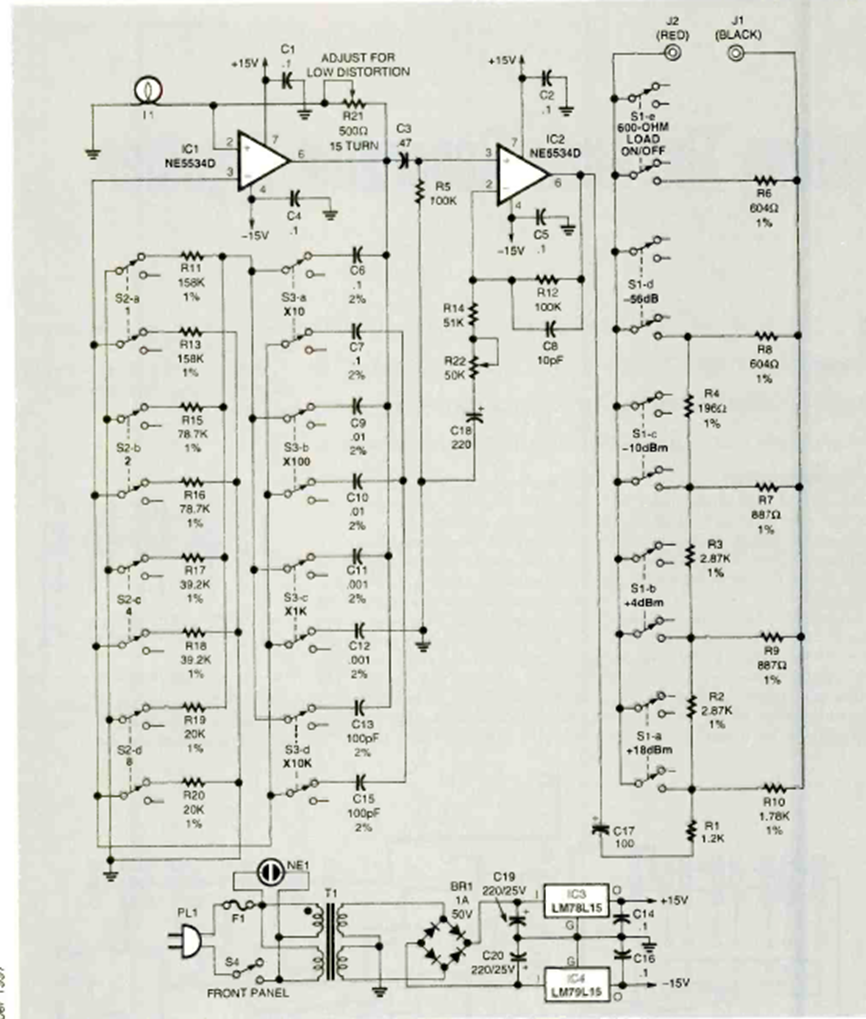 J2
(RED)
J1
(BLACK)
+15V
C1
.1
ADJUST FOR
LOW DISTORTION
R21
500Ω
15 TURN
I1
IC1
NE5534D
2
3
7
6
4
+
−
C4
.1
−15V
C3
.47
R5
100K
+15V
C2
.1
IC2
NE5534D
3
2
7
6
4
+
−
C5
.1
−15V
R12
100K
C8
10pF
R14
51K
R22
50K
C18
220
+
S1-e
600-OHM
LOAD
ON/OFF
R6
604Ω
1%
S1-d
−56dB
R8
604Ω
1%
R4
196Ω
1%
S1-c
−10dBm
R7
887Ω
1%
R3
2.87K
1%
S1-b
+4dBm
R9
887Ω
1%
R2
2.87K
1%
S1-a
+18dBm
R10
1.78K
1%
R1
1.2K
+
C17
100
S2-a
1
R11
158K
1%
R13
158K
1%
S2-b
2
R15
78.7K
1%
R16
78.7K
1%
S2-c
4
R17
39.2K
1%
R18
39.2K
1%
S2-d
8
R19
20K
1%
R20
20K
1%
S3-a
X10
C6
.1
2%
C7
.1
2%
S3-b
X100
C9
.01
2%
C10
.01
2%
S3-c
X1K
C11
.001
2%
C12
.001
2%
S3-d
X10K
C13
100pF
2%
C15
100pF
2%
NE1
PL1
F1
S4
FRONT PANEL
T1
BR1
1A
50V
C19
220/25V
+
C20
220/25V
+
I
IC3
LM78L15
O
G
+15V
C14
.1
G
I
IC4
LM79L15
O
C16
.1
−15V